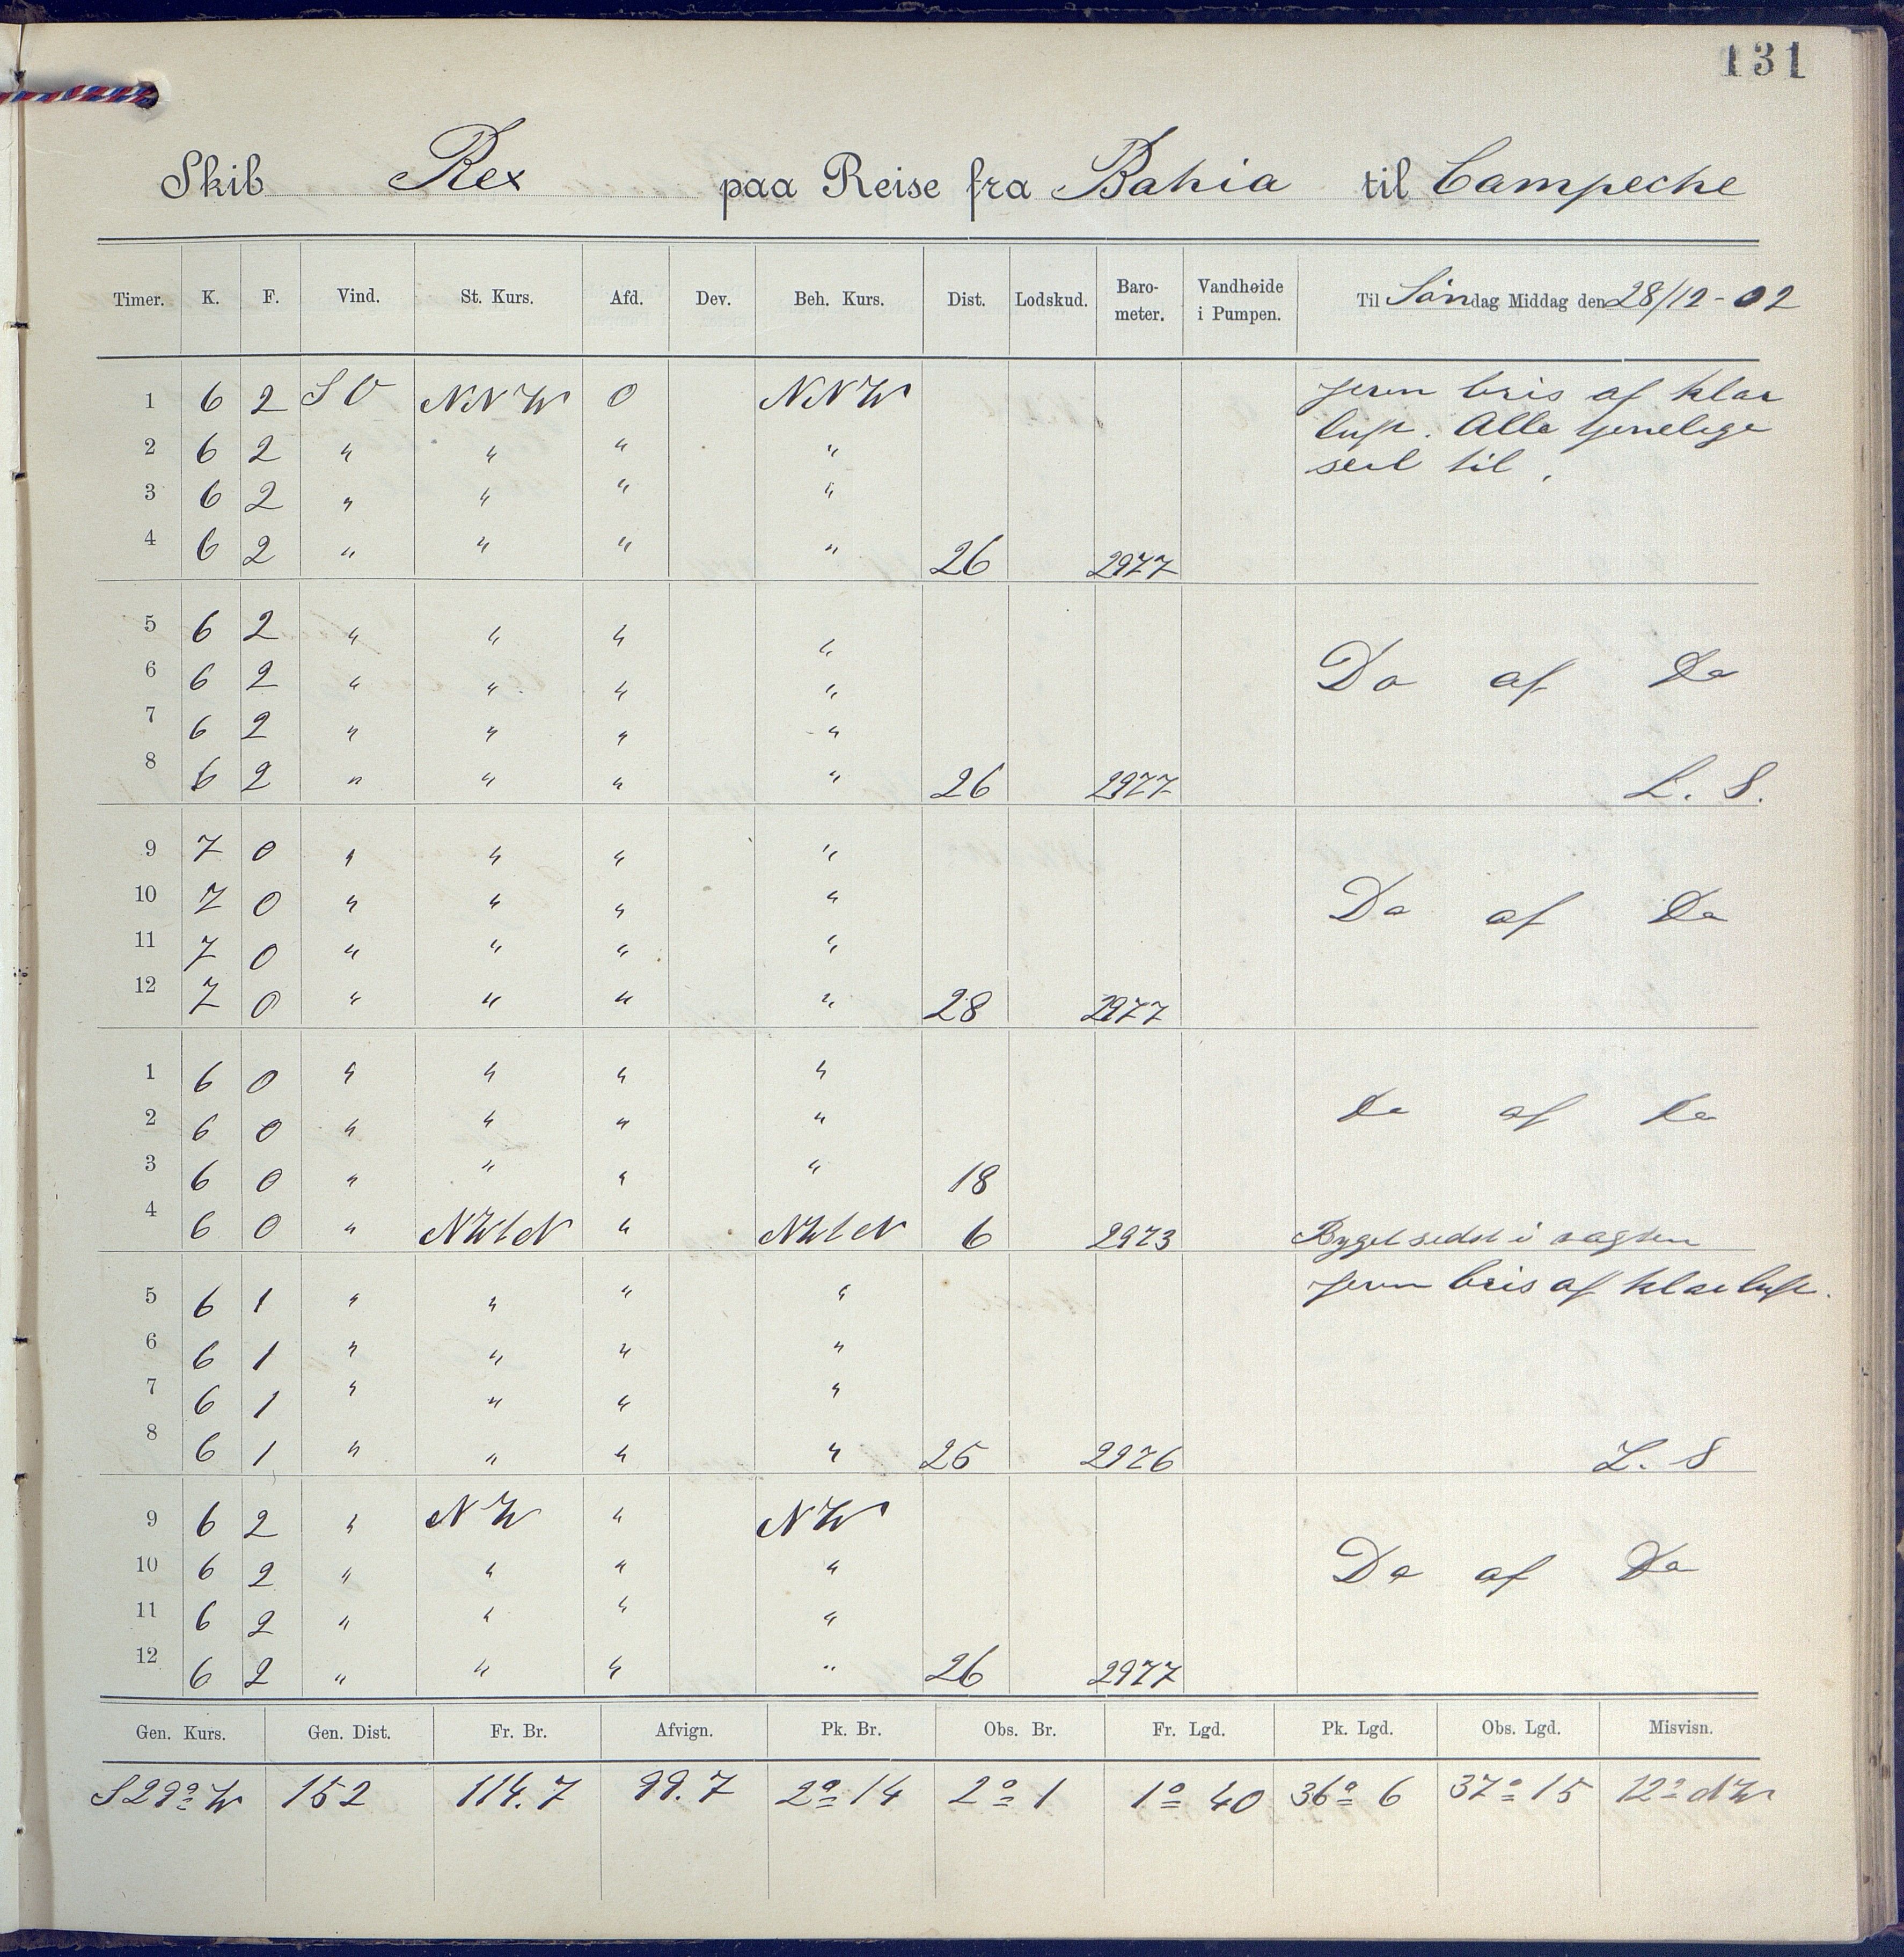 131
Skib Rex paa Reise fra Bahia til Campeche
Timer. K. F. Vind. St. Kurs. Afd. Dev. Beh. Kurs. Dist. Lodskud. Baro-meter. Vandhøide i Pumpen. Til Søndag Middag den 28/12-02
1 6 2 SO NNW 0 NNW jevn bris af klar
luft. Alle tjenelige
2 6 2 " " " "
seil til.
3 6 2 " " " "
4 6 2 " " " " 26 2977
5 6 2 " " " "
6 6 2 " " " " Do af Do
7 6 2 " " " "
8 6 2 " " " " 26 2977 L. S.
9 7 0 " " " "
10 7 0 " " " " Do af Do
11 7 0 " " " "
12 7 0 " " " " 28 2977
1 6 0 " " " "
2 6 0 " " " " Do af Do
3 6 0 " " " " 18
4 6 0 " NWtN " NWtN 6 2973 i vagten
5 6 1 " " " " jevn bris af klar luft.
6 6 1 " " " "
7 6 1 " " " "
8 6 1 " " " " 25 2976 L. S
9 6 2 " NW " NW
10 6 2 " " " " Do af Do
11 6 2 " " " "
12 6 2 " " " " 26 2977
Gen. Kurs. Gen. Dist. Fr. Br. Afvign. Pk. Br. Obs. Br. Fr. Lgd. Pk. Lgd. Obs. Lgd. Misvisn.
S29°W 152 114.7 99.7 2° 14 2° 1 1° 40 36° 6 37° 15 12° NW